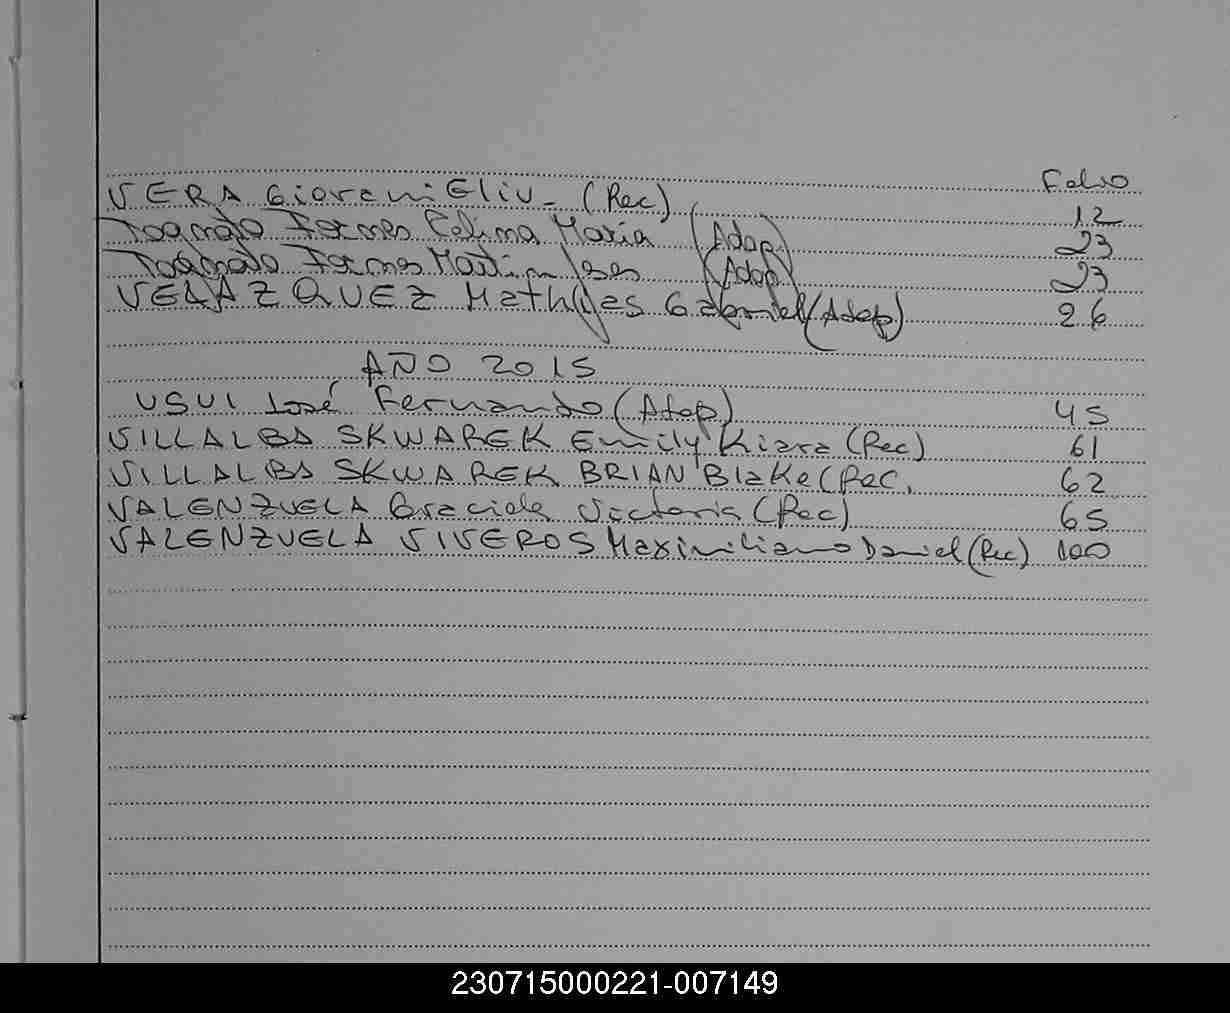 Folio
VERA Giovani Eliu - (Rec) 12
Celima Maria (Adop) 23
Martin Jose (Adop) 23
VELAZQUEZ Mathyas Gabriel (Adop) 26
AÑO 2015
USUI José Fernando (Adop) 45
VILLALBA SKWAREK Emily Kiara (Rec) 61
VILLALBA SKWAREK BRIAN Blake (Rec. 62
VALENZUELA Graciela Victoria (Rec) 65
VALENZUELA VIVEROS Maximiliano Daniel (Rec) 100
230715000221-007149